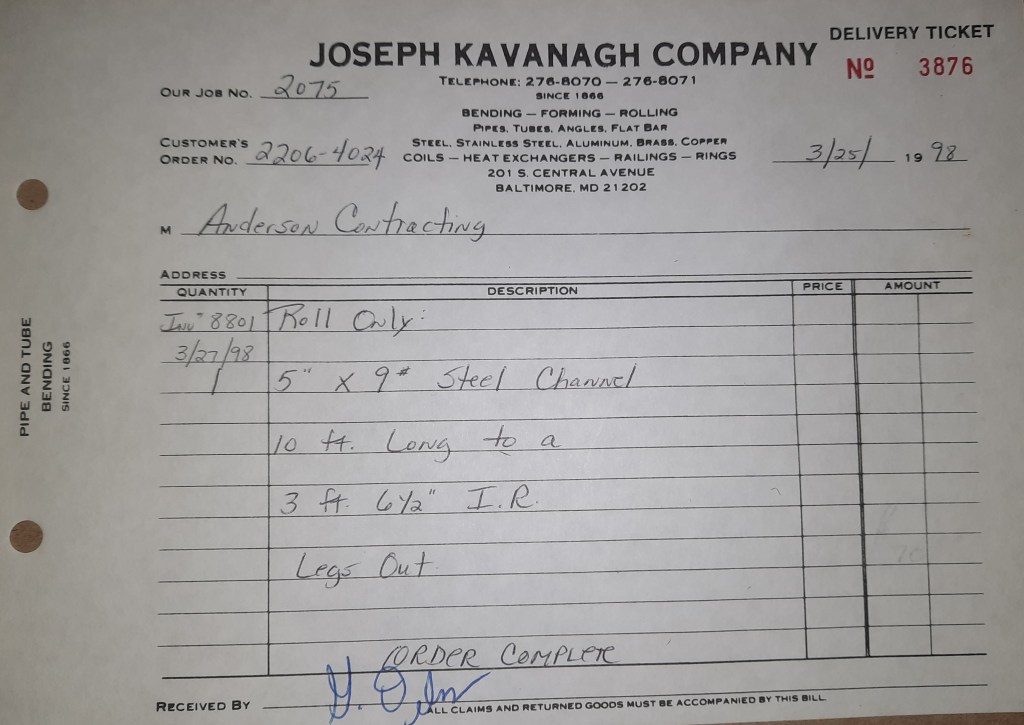 DELIVERY TICKET
JOSEPH KAVANAGH COMPANY
Nº 3876
TELEPHONE: 276-8070 — 276-8071
OUR JOB NO. 2075
SINCE 1866
BENDING — FORMING — ROLLING
PIPES, TUBES, ANGLES, FLAT BAR
CUSTOMER'S
STEEL, STAINLESS STEEL, ALUMINUM, BRASS, COPPER
ORDER NO. 2206-4024
COILS — HEAT EXCHANGERS — RAILINGS — RINGS
3/25/ 19 98
201 S. CENTRAL AVENUE
BALTIMORE, MD 21202
M Anderson Contracting
ADDRESS
QUANTITY DESCRIPTION PRICE AMOUNT
Inv 8801 Roll Only:
3/27/98
1 5" x 9# Steel Channel
10 ft. Long to a
3 ft. 6 1/2" I.R.
Legs Out
ORDER COMPLETE
RECEIVED BY
ALL CLAIMS AND RETURNED GOODS MUST BE ACCOMPANIED BY THIS BILL
PIPE AND TUBE
BENDING
SINCE 1866